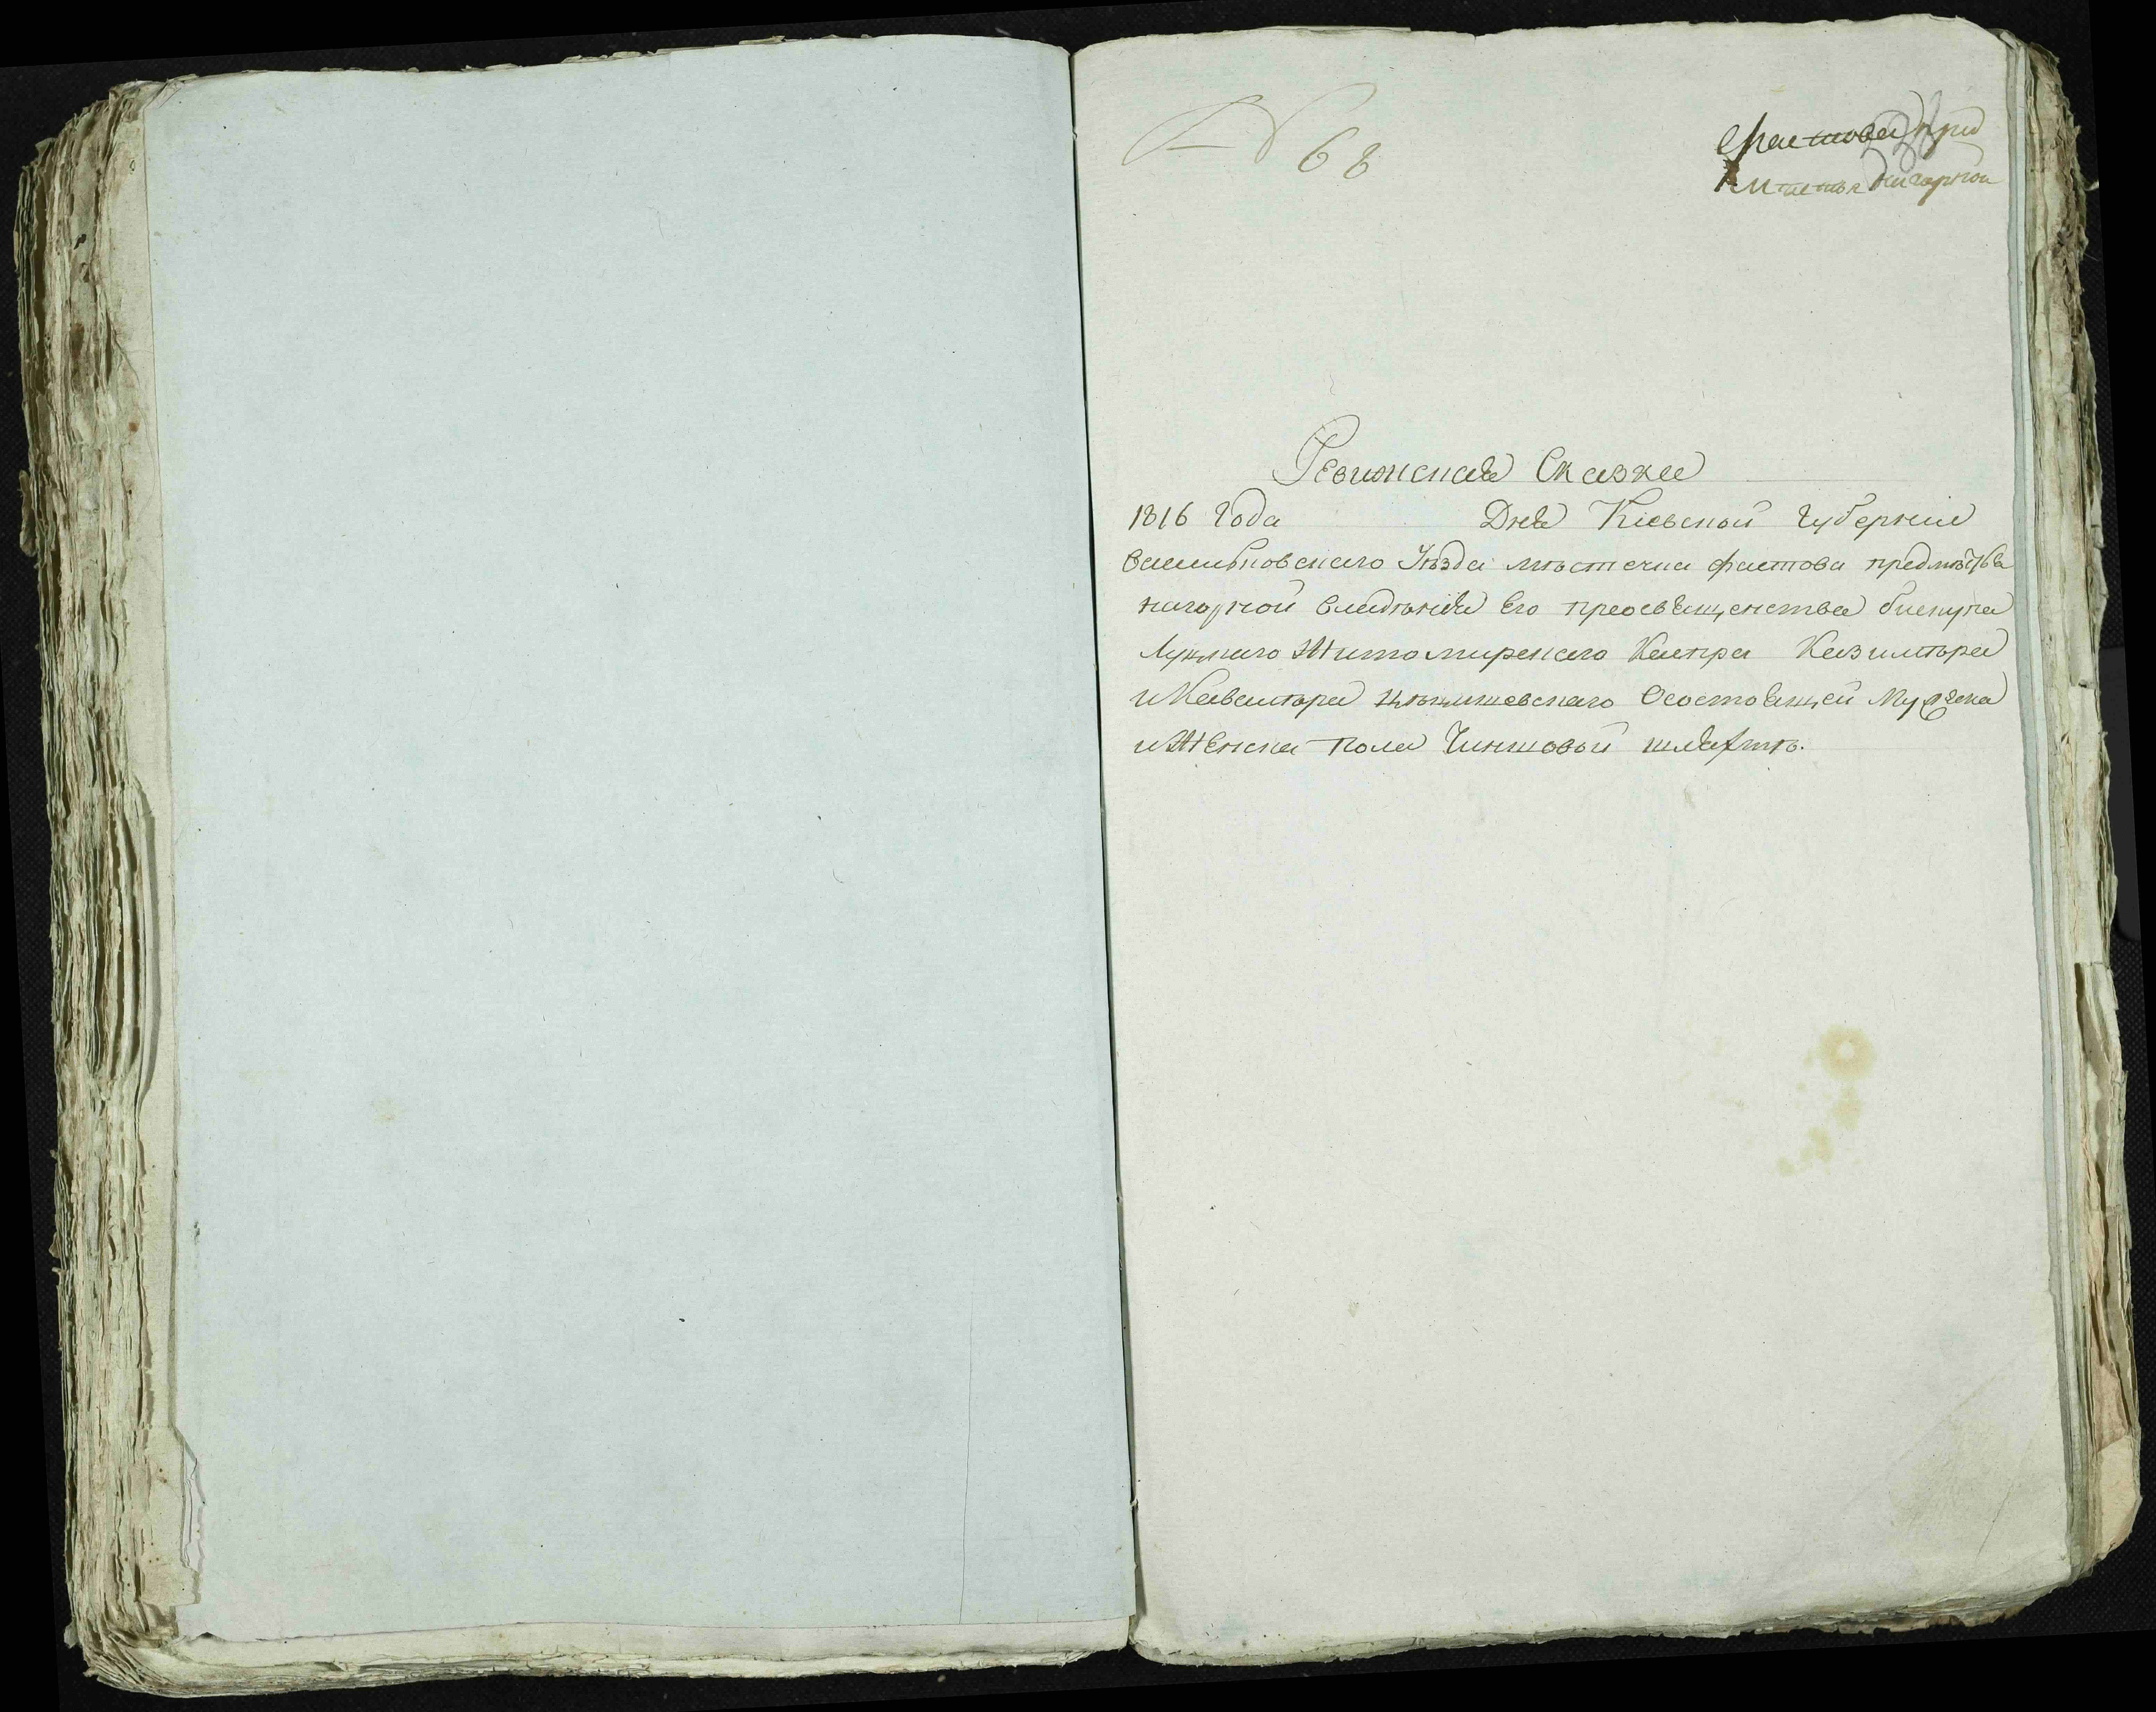 № 68
Фастова пред
мѣстья Нагорной
Ревижская Сказка
1816 Года Дня Кіевской Губерніи
Васильковскаго Уѣзда мѣстечка фастова предмѣстья
нагорной владѣнія Его преосвященства бискупа
Луцкаго Житомирскаго Каспра Казимѣра
и Кавалѣра Цѣцишевскаго О состоящей Мужеска
и Женска пола Чиншовой шляхтѣ.